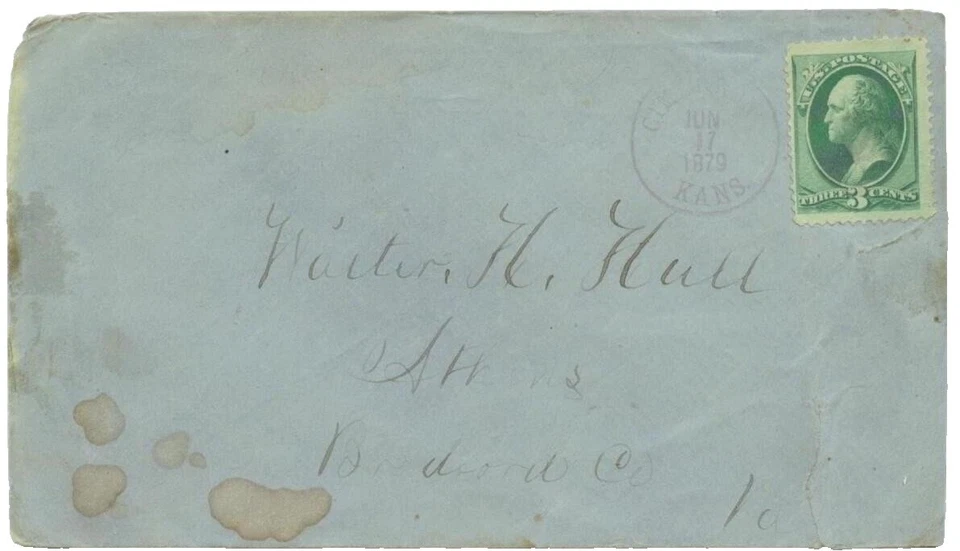 U.S. POSTAGE
THREE 3 CENTS
JUN
17
1879
KANS.
Walter. H. Hull
Bradford Co
Pa